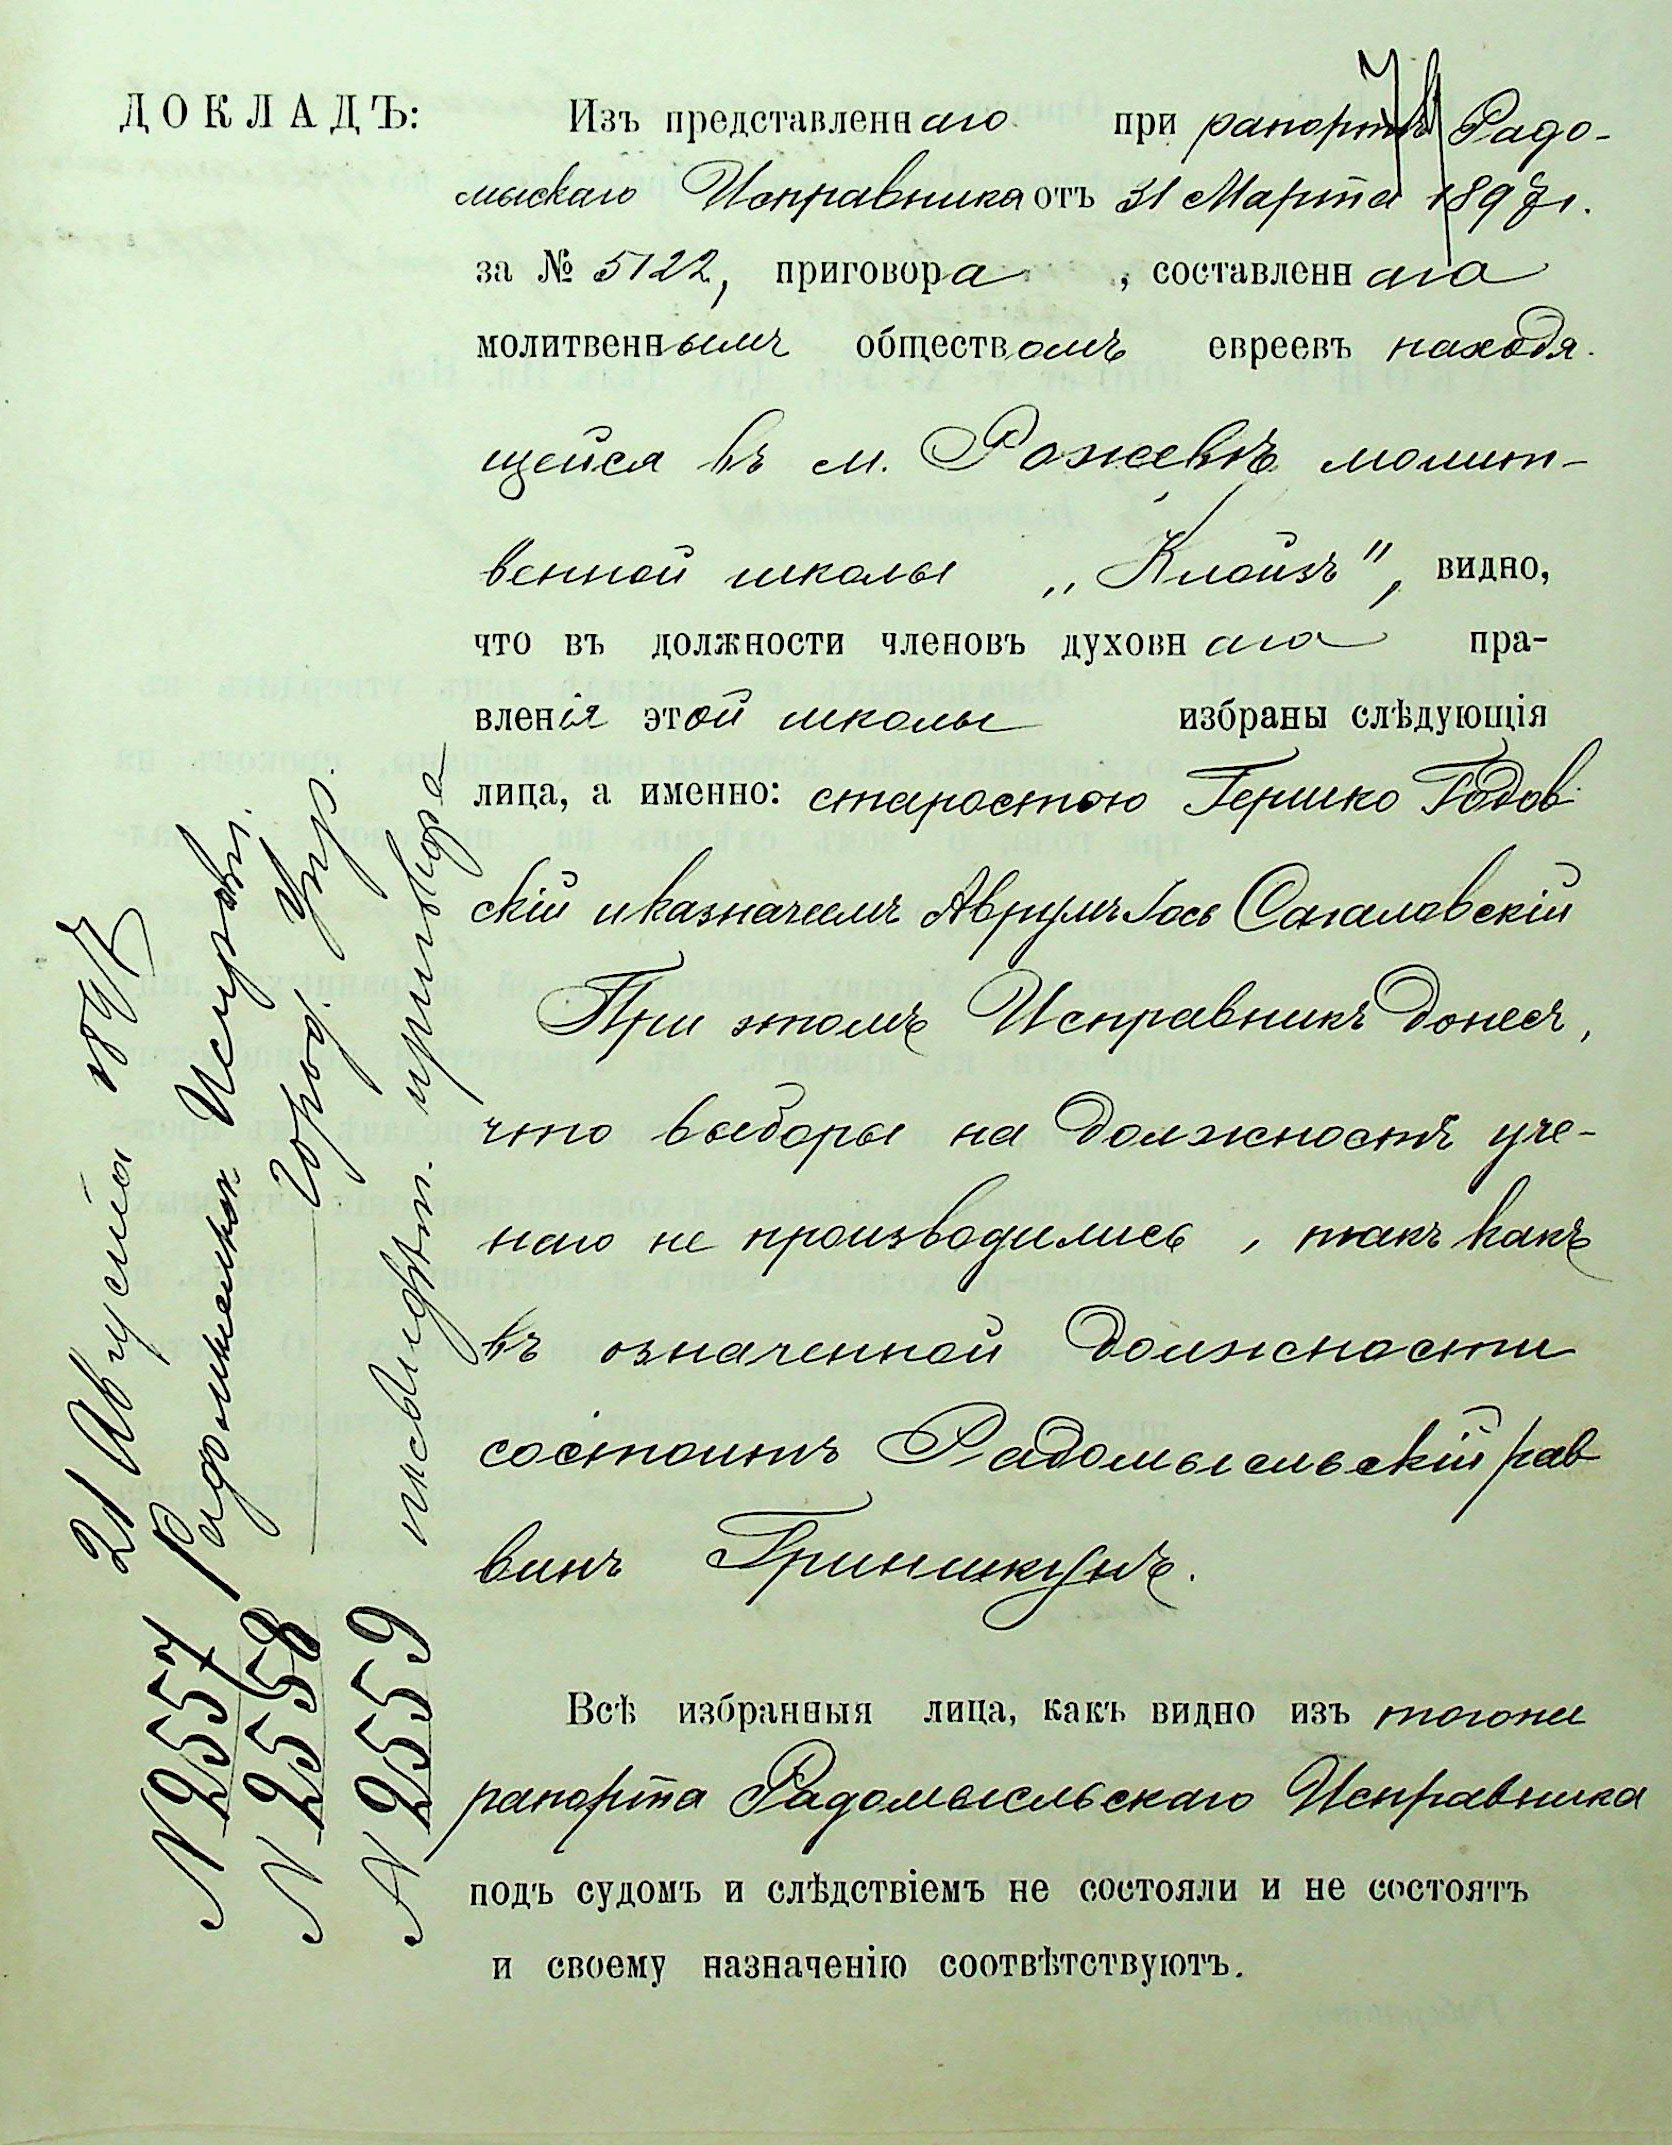 ДОКЛАДЪ:
Изъ представленнаго при рапортѣ Радо-
мыскаго Исправника отъ 31 Марта 1897 г.
за № 5122, приговора, составленнаго
молитвеннымъ обществомъ евреевъ находя-
щейся въ м. Рожевѣ молит-
венной школы „Клойзъ", видно,
что въ должности членовъ духовнаго пра-
вленія этой школы избраны слѣдующія
лица, а именно: старостою Гершко Годов-
скій и казначеемъ Аврумъ Іось Сагаловскій
При этомъ Исправникъ донесъ,
что выборы на должность уче-
наго не производились, такъ какъ
въ означенной должности
состоитъ Радомысльскій рав
винъ Гриншкунъ.
Всѣ избранныя лица, какъ видно изъ того же
рапорта Радомысльскаго Исправника
подъ судомъ и слѣдствіемъ не состояли и не состоятъ
и своему назначенію соотвѣтствуютъ.
21 Августа 1897
N 2557 Исправн.
N 2558 Город. Упр.
N 2559 приговора